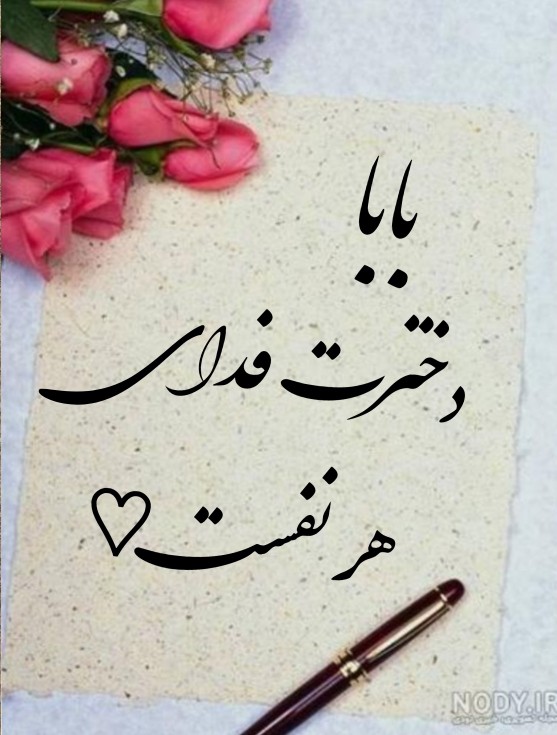 بابا
دخترت فدای
هر نفست♡
NODY.IR